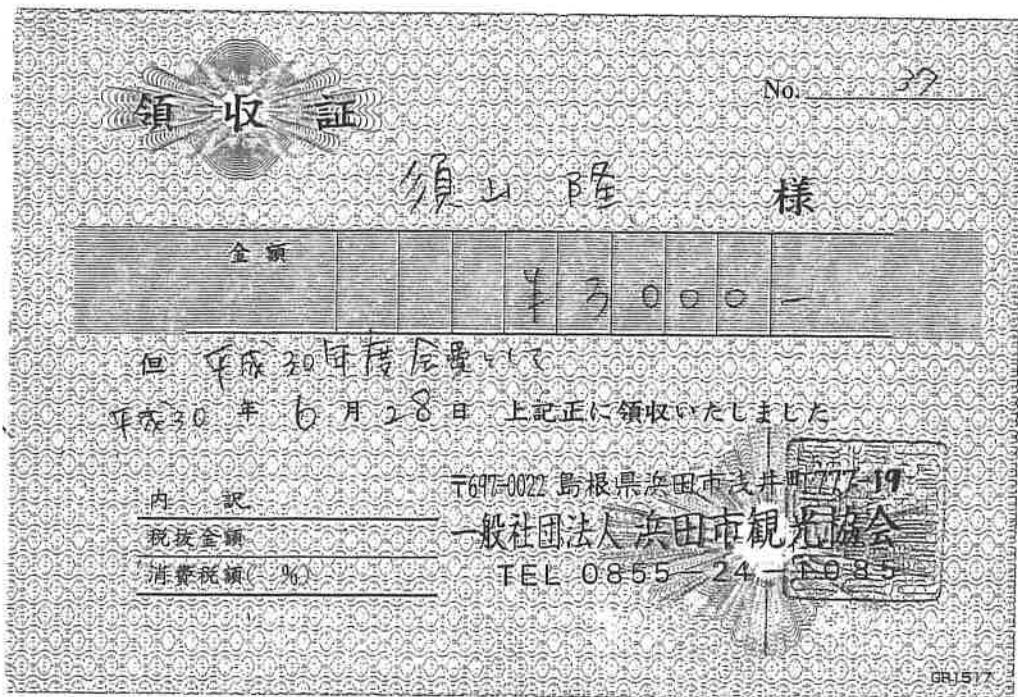 領収証
No. 37
須山 隆 様
金額
¥3000-
但 平成30年度会費として
平成30年6月28日 上記正に領収いたしました
内訳
税抜金額
消費税額( %)
〒697-0022 島根県浜田市浅井町777-19
一般社団法人 浜田市観光協会
TEL 0855-24-1085
GR1517